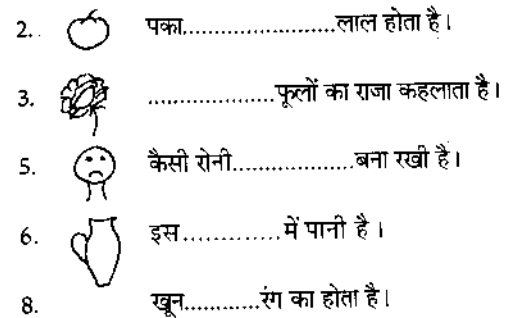 2. पका......................लाल होता है।
3. ..................फूलों का राजा कहलाता है।
5. कैसी रोनी..................बना रखी है।
6. इस..............में पानी है ।
8. खून...........रंग का होता है।